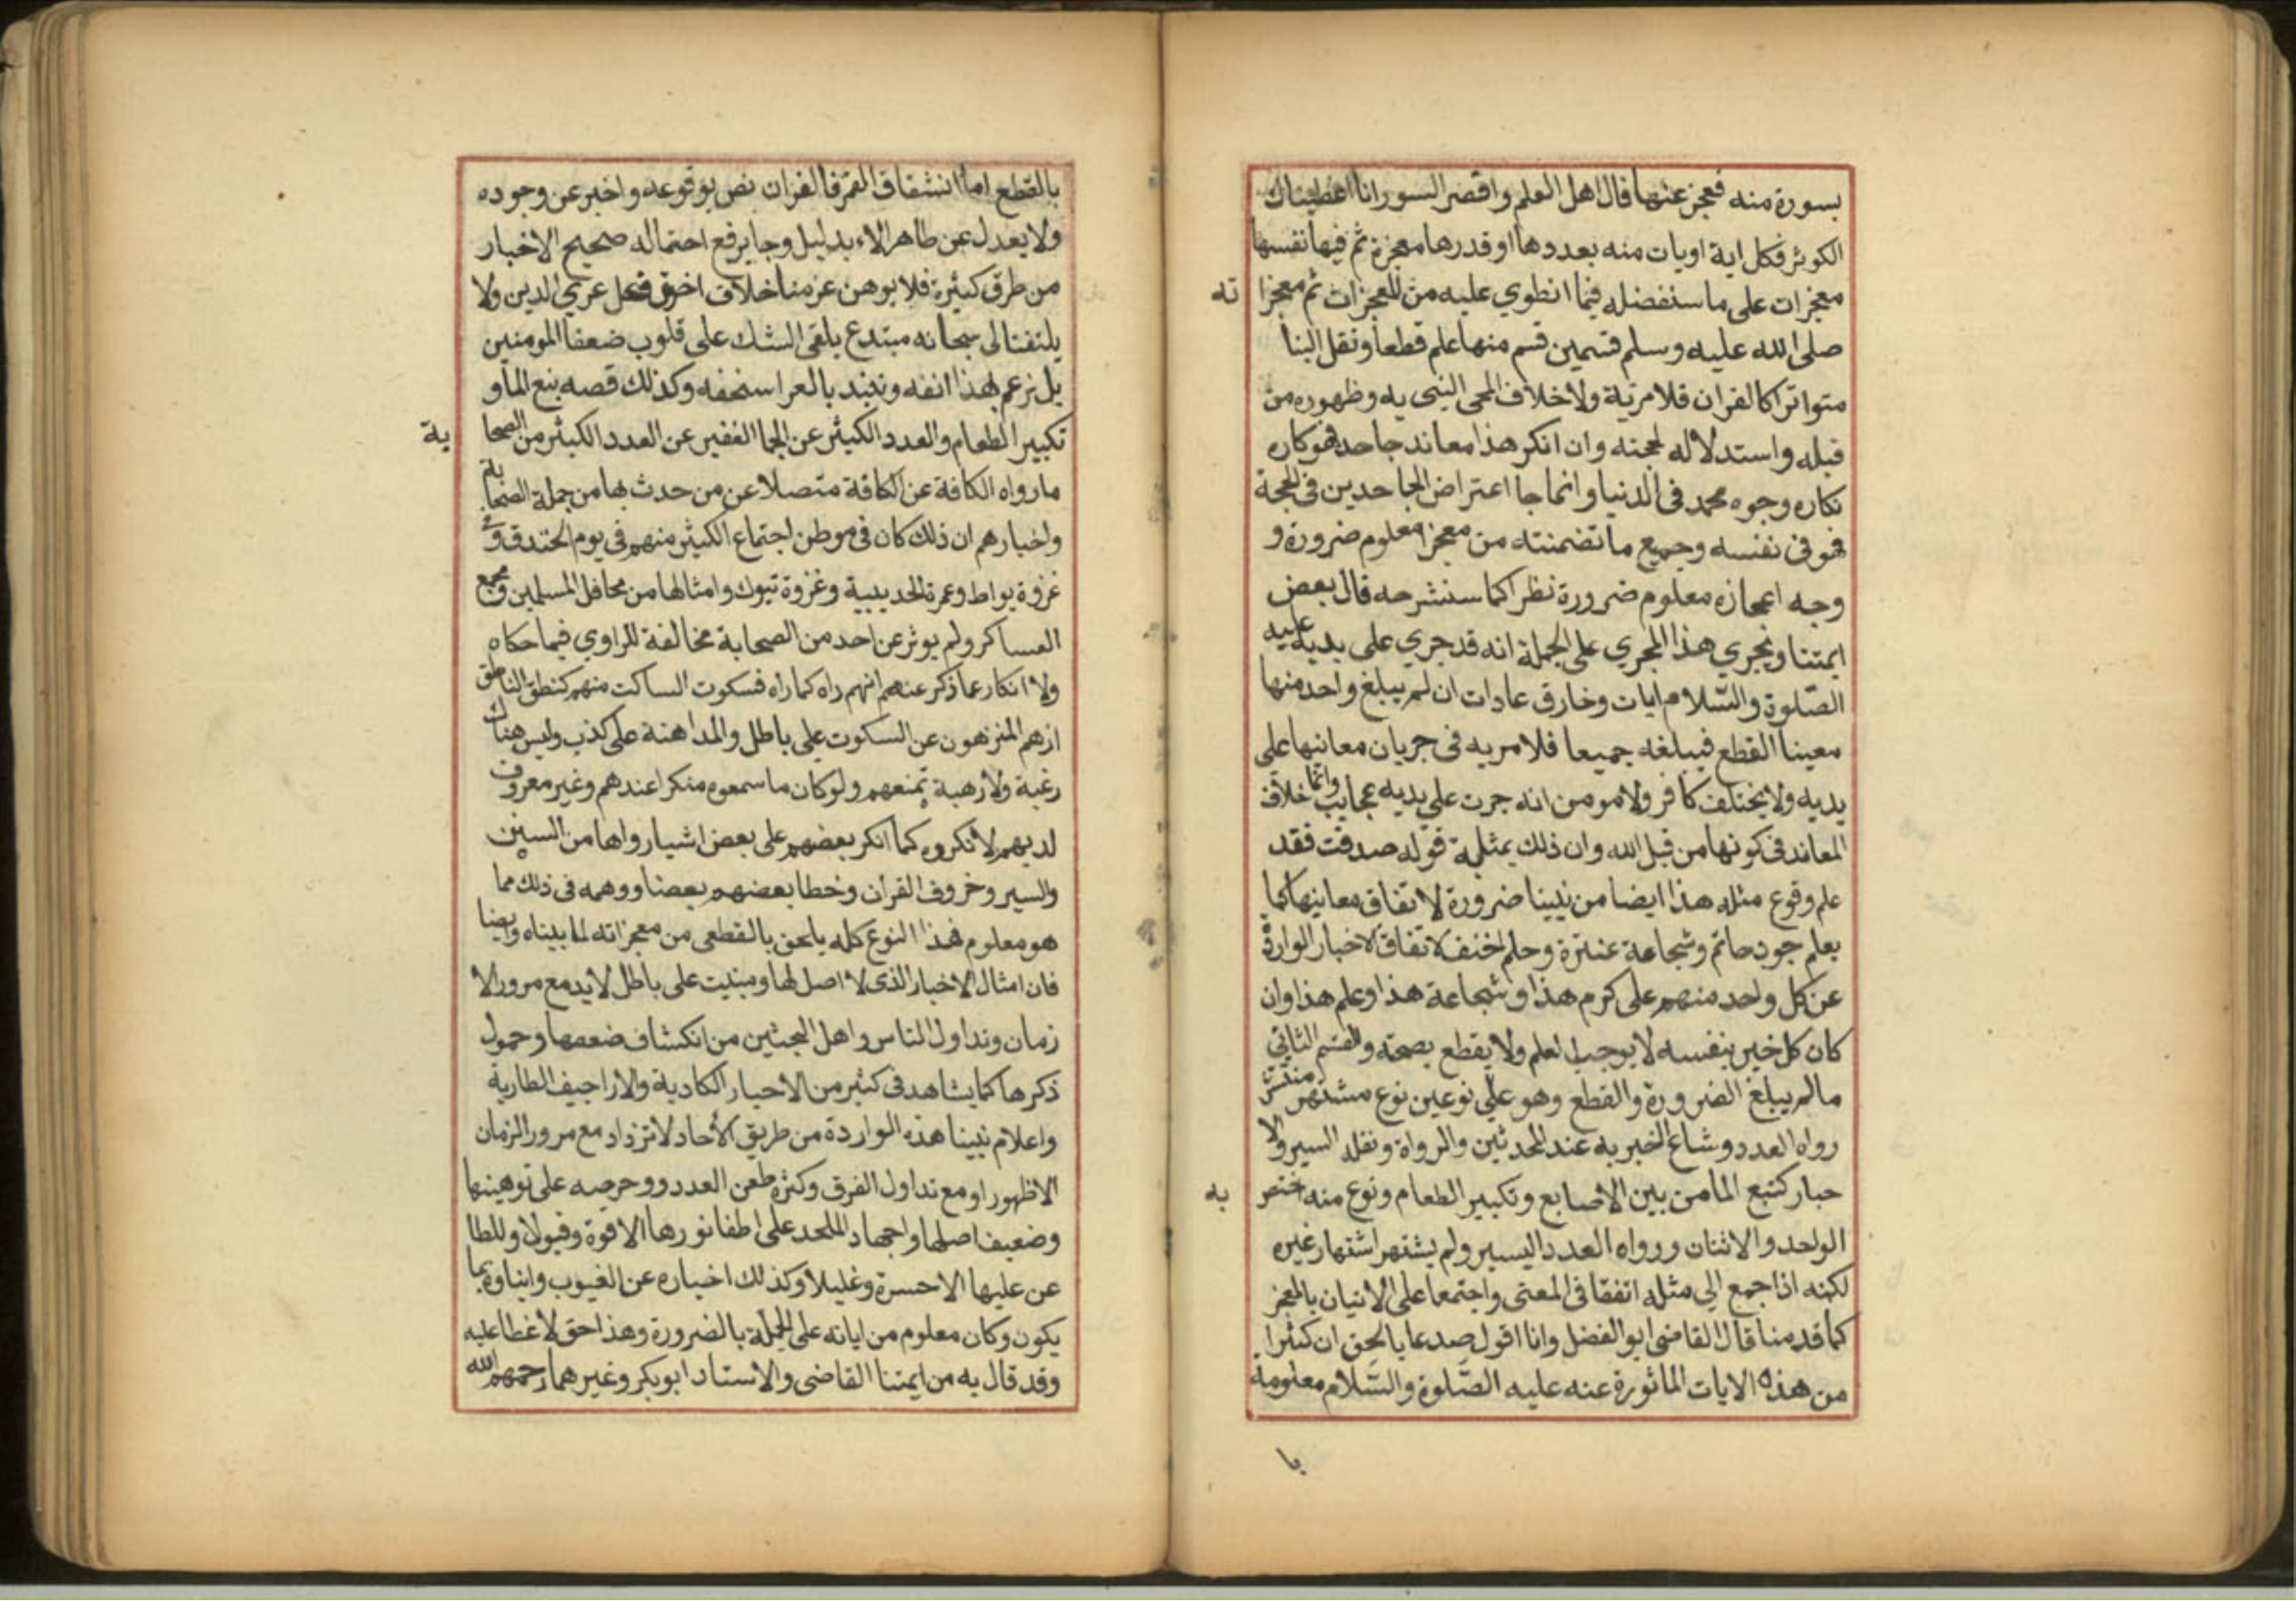 بسورة منه فعجز عنها قال اهل العلم واقصر السور انا اعطيناك
الكوثر فكل اية او يات منه بعددها او قدرها معجزة ثم فيها نفسها
معجزات على ما سنفضله فيما انطوي عليه من المعجزات ثم معجزا
ته
صلى الله عليه وسلم قسمين قسم منها علم قطعا ونقل الينا
متواترا كالقران فلا مرية ولا خلاف المجى النبى به وظهوره من
قبله واستدلاله لحجته وان انكر هذا معاند جاحد فهو كاره
نكاره وجوه محمد فى الدنيا وانما جا اعتراض الجاحدين فى الحجة
فهو فى نفسه وجميع ما تضمنته من معجز معلوم ضرورة و
وجه اعجازه معلوم ضرورة نظرا كما سنشرحه قال بعض
ايمتنا ويجري هذا المجري على الجملة انه قد جري على يديه عليه
الصلوة والسلام ايات وخارق عادات ان لم يبلغ واحد منها
معينا القطع فيبلغه جميعا فلا مريه فى جريان معانيها على
يديه ولا يختلف كافر ولا مومن انه جرت على يديه عجايب وانما خلاف
المعاند فى كونها من قبل الله وان ذلك بمثلهة قوله صدقت فقد
علم وقوع مثله هذا ايضا من نبينا ضرورة لاتفاق معانيها كما
يعلم جود حاتم وشجاعة عنترة وحلم احنف لاتفاق الاخبار الواردة
عن كل واحد منهم على كرم هذا وشجاعة هذا وعلم هذا وان
كان كل خبر بنفسه لا يوجب العلم ولا يقطع بصحته والقسم الثاني
مالم يبلغ الضرورة والقطع وهو على نوعين نوع مشتهر منتشر
رواه العدد وشاع الخبر به عند المحدثين والرواة ونقله السير والا
حبار كنبع الما من بين الاصابع وتكبير الطعام ونوع منه اختص
به
الواحد والاثنان ورواه العدد اليسير ولم يشتهر اشتهار غيره
لكنه اذا جمع الي مثله اتفقا فى المعنى واجتمعا على الاتيان بالمعجز
كما قدمنا قال القاضى ابو الفضل وانا اقول صدعا بالحق ان كثيرا
من هذه الايات الماثورة عنه عليه الصلوة والسلام معلومة
با
بالقطع اما انشقاق القمر فالقران نص بوقوعه واخبر عن وجوده
ولا يعدل عن ظاهر الا بدليل وجا برفع احتماله صحيح الاخبار
من طرق كثيرة فلا يوهن عزمنا خلاف اخرق عري الدين ولا
يلتفت الى سخانه مبتدع يلقى الشك على قلوب ضعفا المومنين
بل نرغم بهذا انفه وننبذ بالعرا سخفه وكذلك قصه نبع الما و
تكبير الطعام والعدد الكثير عن الجما الغفير عن العدد الكبير من الصحا
بة
ما رواه الكافة عن الكافة متصلا عن من حدث بها من جملة الصحابة
واخبارهم ان ذلك كان فى موطن اجتماع الكثير منهم فى يوم الخندق و
غزوة بواط وعمرة الحديبية وغزوة تبوك وامثالها من محافل المسلمين ومجمع
العساكر ولم يوثر عن احد من الصحابة مخالفة للراوي فيما حكاه
ولا انكار عما ذكر عنهم انهم راه كما راه فسكوت الساكت منهم كنطق الناطق
اذ هم المنزهون عن السكوت على باطل والمداهنة على كذب وليس هناك
رغبة ولا رهبة تمنعهم ولو كان ما سمعوه منكرا عندهم وغير معروف
لديهم لانكروه كما انكر بعضهم على بعض اشيا رواها من السنن
والسير وحروف القران وخطا بعضهم بعضا ووهمه فى ذلك مما
هو معلوم فهذا النوع كله يلحق بالقطعى من معجزاته لما بيناه وايضا
فان امثال الاخبار الذى لا اصل لها وبنيت على باطل لابد مع مرور الا
زمان وتداول الناس واهل البحث من انكشاف ضعفها وخمول
ذكرها كما يشاهد فى كثير من الاخبار الكاذبة والاراجيف الطارية
واعلام نبينا هذه الواردة من طريق الاحاد لا تزداد مع مرور الزمان
الا ظهورا ومع تداول الفرق وكثرة طعن العدد ووحرصه على توهينها
وضعيف اصلها واجهاد الملحد على اطفا نورها الا قوة وقبولا وللطا
عن عليها الا حسرة وغليلا وكذلك اخباره عن الغيوب وانباوه بما
يكون وكان معلوم من اياته على الجملة بالضرورة وهذا حق لا غطا عليه
وقد قال به من ايمتنا القاضى والاستاد ابو بكر وغيرهما رحمهم الله